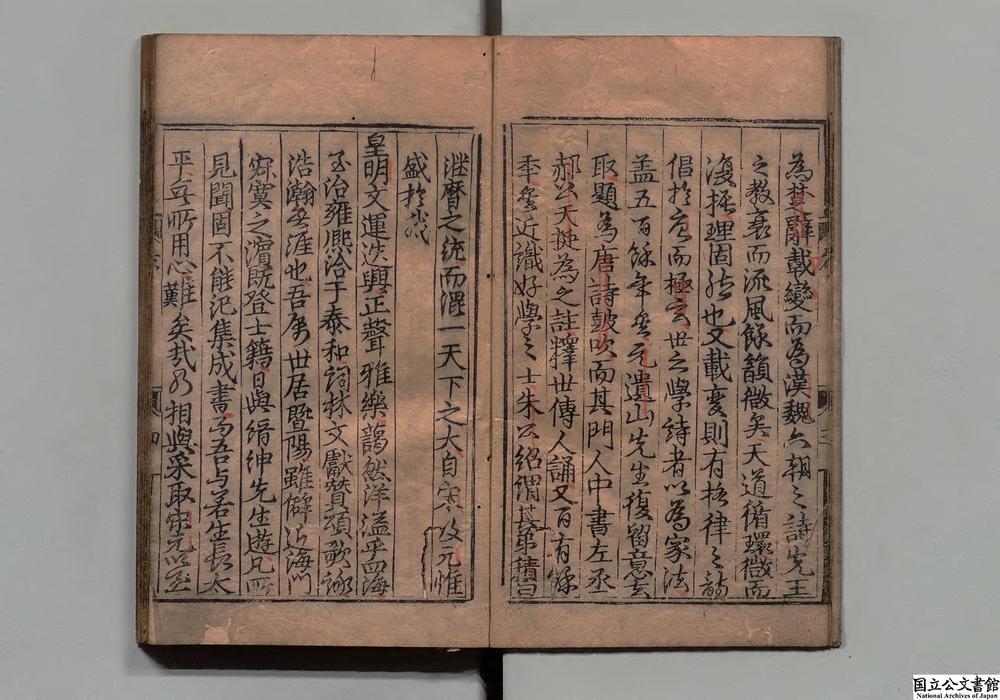 為楚辭載變而為漢魏六朝之詩先王
之教衰而流風餘韻微矣天道循環微而
復振理固然也又載變則有格律之詩
倡於唐而極玄世之學詩者以為家法
盖五百餘年矣元遺山先生復留意去
取題為唐詩鼓吹而其門人中書左丞
郝公天挺為之註釋世傳人誦又百有餘
季矣近識好學之士朱公紹謂其弟積曰
歷之統而混一天下之大自宋及元惟
盛於
皇明文運迭興正聲雅樂藹然洋溢乎四海
至治雍熙洽于泰和詞林文獻贊頌歌詠
浩瀚無涯也吾宗世居暨陽雖僻近海門
寂寞之濵既登士籍日與縉紳先生遊凡所
見聞固不能汜集成書而吾与若生長太
平無所用心難矣哉乃相與采取宋元以至
國立公文書館
National Archives of Japan